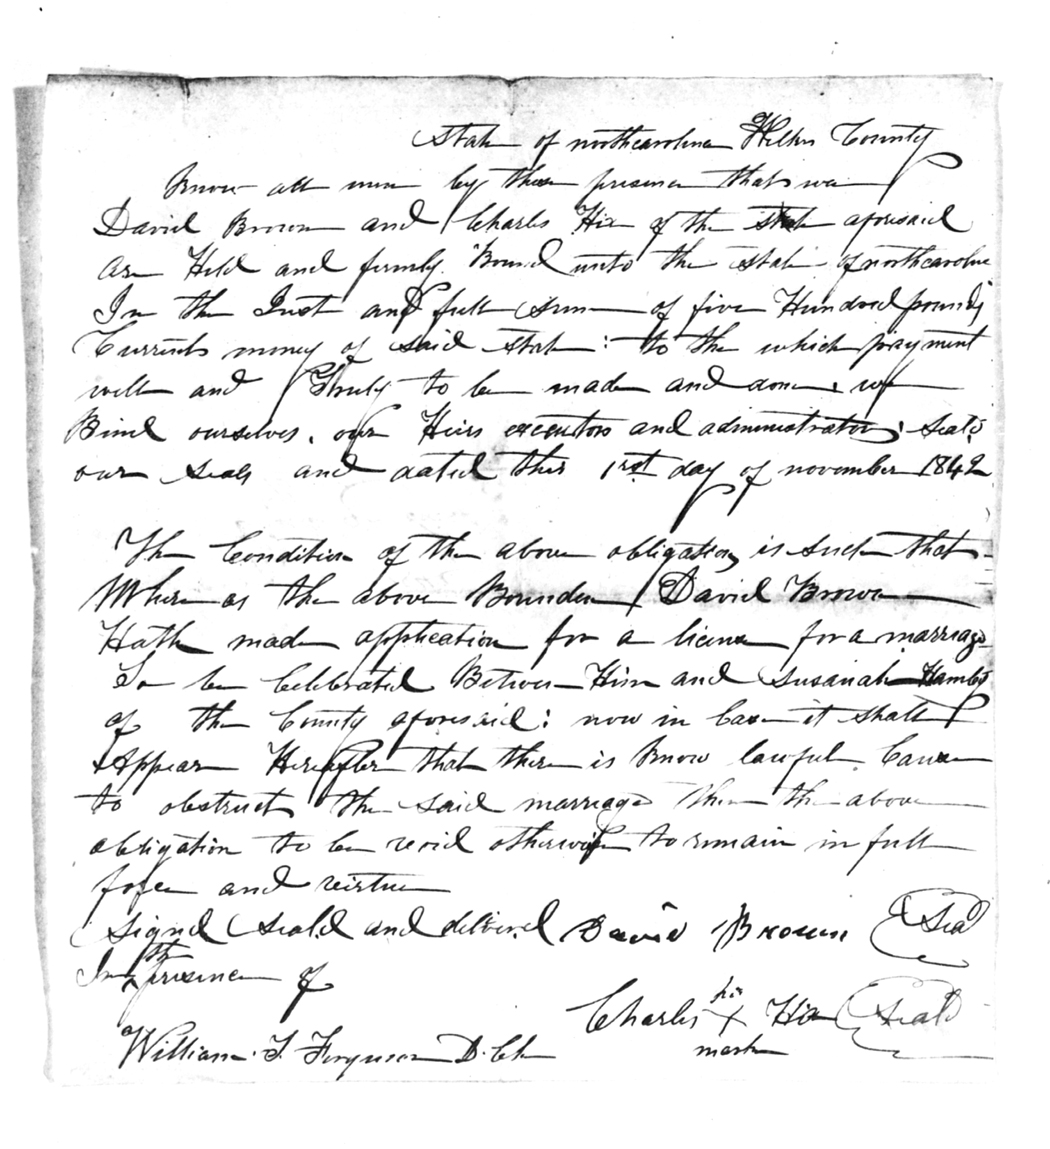 State of northcarolina Wilkes County
Know all men by these presence that we
David Brown and Charles Hix of the state aforesaid
Are Held and firmly Bound unto the state of northcarolina
In the Just and full sum of five Hundred pounds
Current money of said state: to the which payment
well and Truly to be made and done. we
Bind ourselves. our Heirs executors and administrators: Seald
our seals and dated this 1rst day of november 1842
The Condition of the above obligation is such that
Where as the above Bounden David Brown
Hath made application for a license for a marriage
To be Celebrated Between Him and Susanah Hamby
of the County aforesaid: now in Case it shall
Appear Hereafter that there is know lawful Cause
to obstruct the said marriage then the above
obligation to be void otherwise to remain in full
force and virtue
Signed Seald and deliverd David Brown Seal
In the presence of
Charles his X Hix Seald
mark
William. T. Ferguson D. Clk